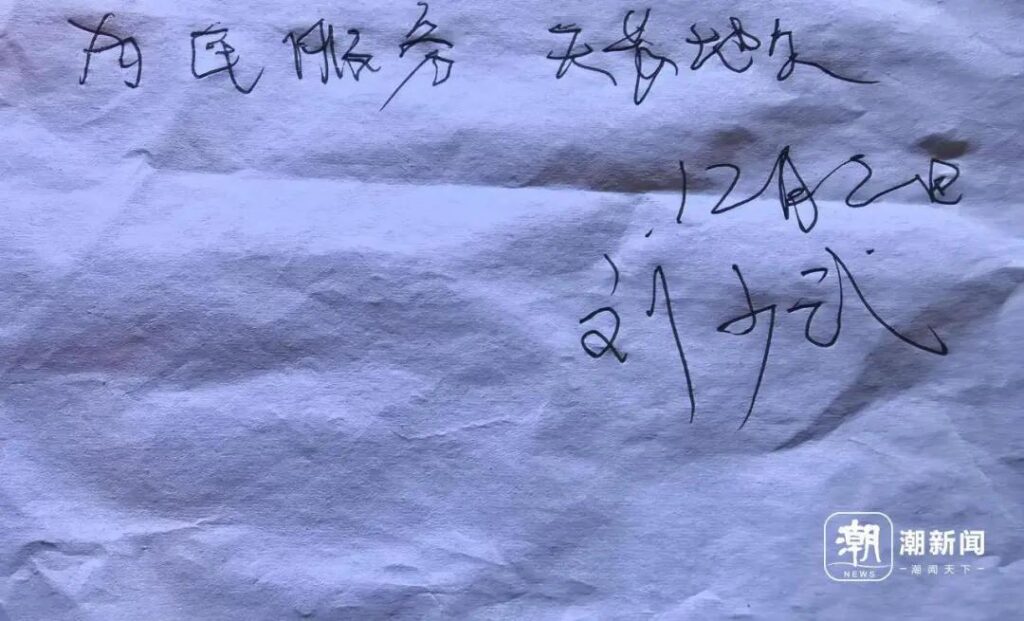 为民服务 天长地久
12月2日
刘少武
潮 潮新闻
NEWS —潮闻天下—